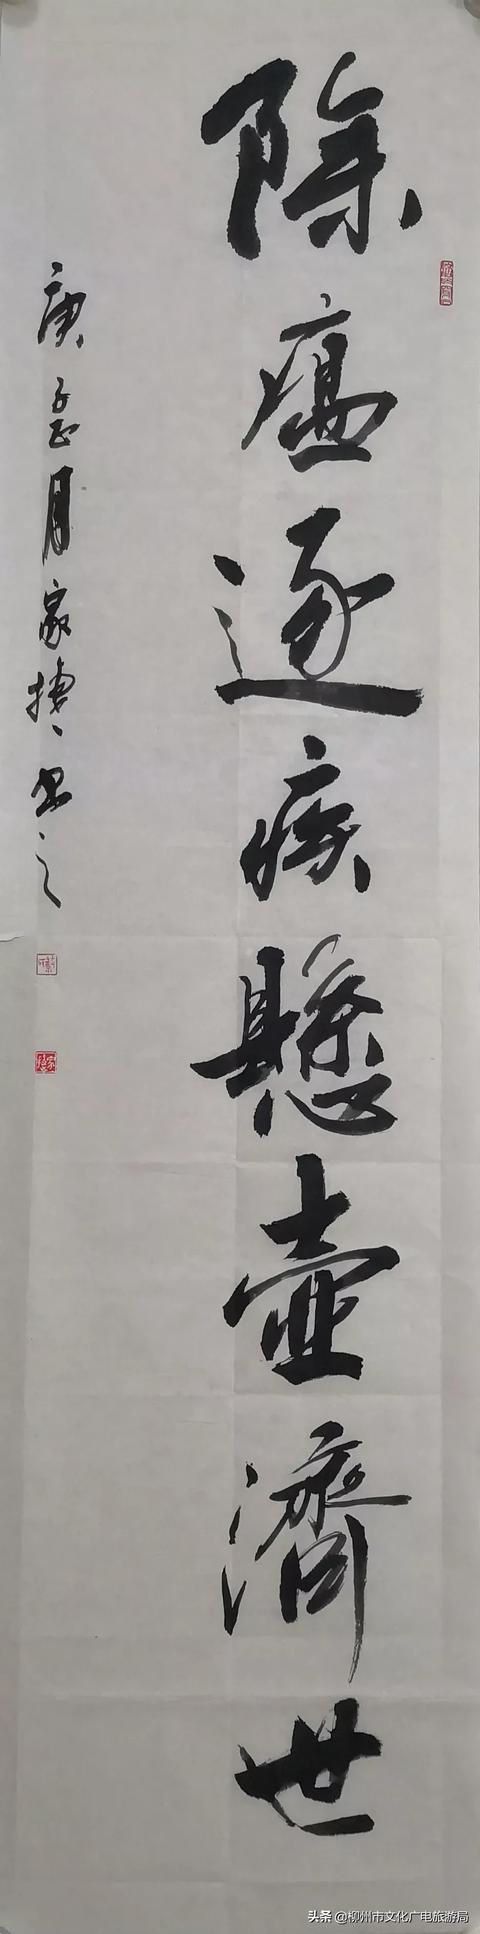 除瘟逐疾懸壺濟世
庚子正月家搏書之
头条 @柳州市文化广电旅游局